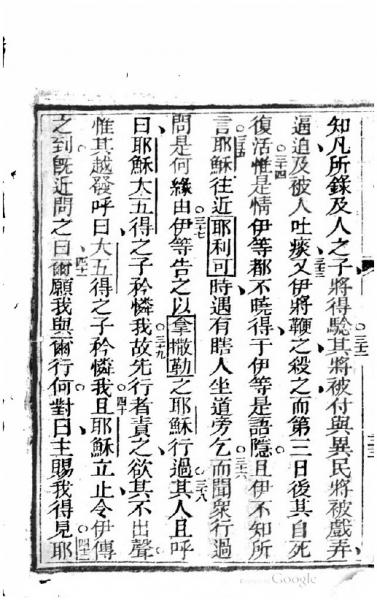 知凡所錄及人之子將得驗其將被付與異民將被戲弄
三二
逼迫及被人吐痰又伊將鞭之殺之而第三日後其自死
三三
復活惟是情伊等都不曉得于伊等是語隱且伊不知所
三四
言耶穌徃近耶利可時遇有瞎人坐道旁乞而聞衆行過
三五
三六
問是何緣由伊等告之以拿撒勒之耶穌行過其人且呼
三七
三八
曰耶穌大五得之子矜憐我故先行者責之欲其不出聲
三九
惟其越發呼曰大五得之子矜憐我且耶穌立止令伊傳
四十
之到旣近問之曰爾願我與爾行何對曰主賜我得見耶
四一
四二
Google